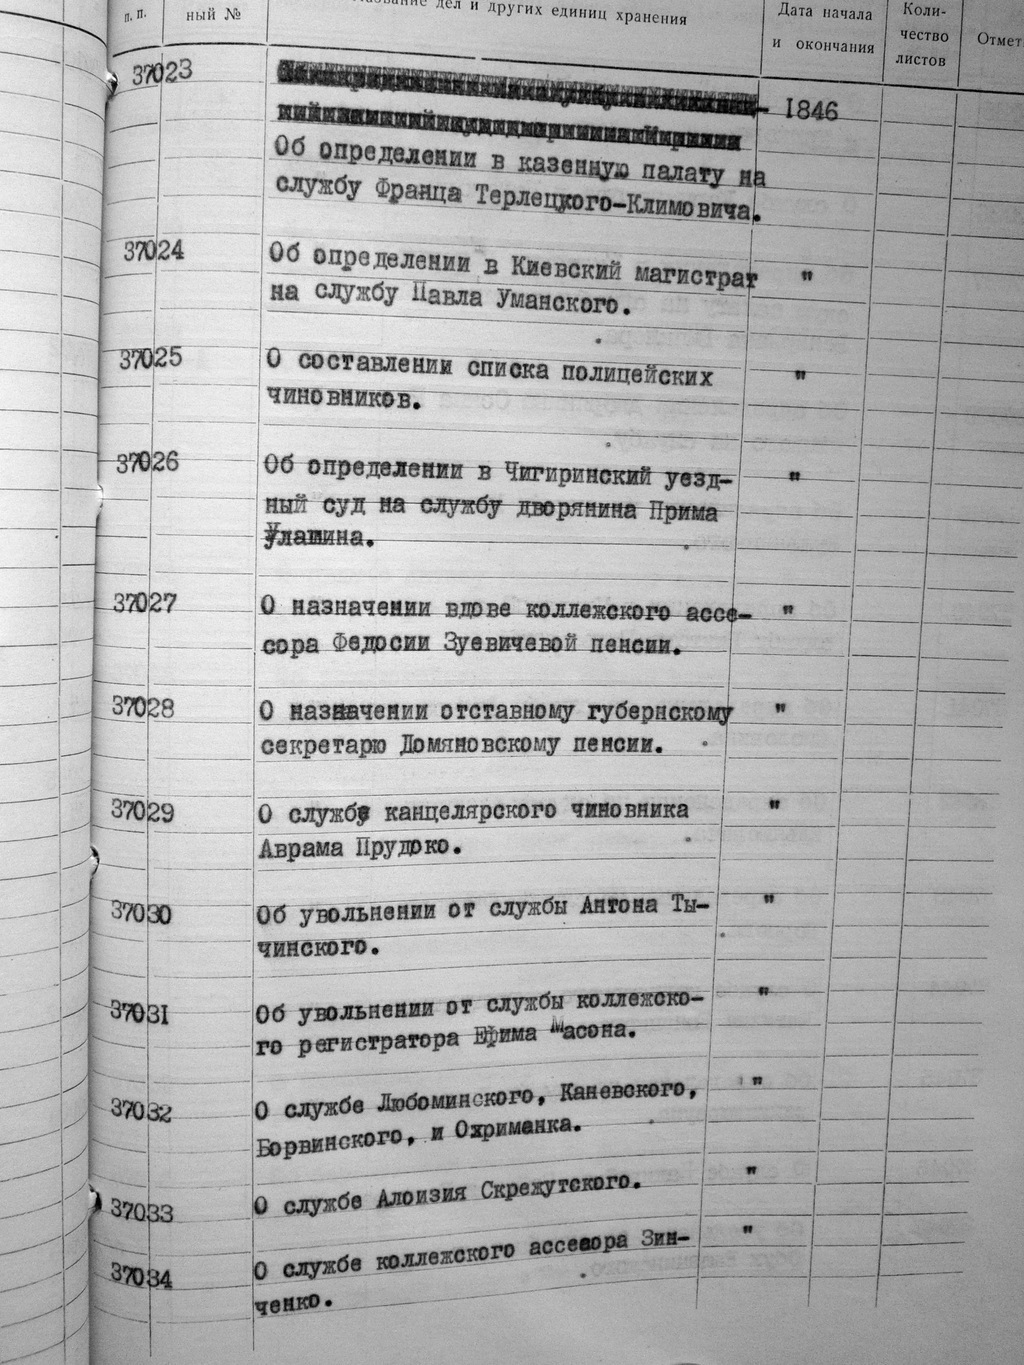 п. п.
ный №
дел и других единиц хранения
Дата начала
и окончания
Коли-
чество
листов
Отмет
37023
1846
Об определении в казенную палату на
службу Франца Терлецкого-Климовича.
37024
Об определении в Киевский магистрат "
на службу Павла Уманского.
37025
О составлении списка полицейских "
чиновников.
37026
Об определении в Чигиринский уезд- "
ный суд на службу дворянина Прима
Улашина.
37027
О назначении вдове коллежского ассе- "
сора Федосии Зуевичевой пенсии.
37028
О назначении отставному губернскому "
секретарю Домяновскому пенсии.
37029
О службе канцелярского чиновника "
Аврама Прудоко.
37030
Об увольнении от службы Антона Ты- "
чинского.
37031
Об увольнении от службы коллежско- "
го регистратора Ефима Масона.
37032
О службе Любоминского, Каневского, "
Борвинского, и Охриманка.
37033
О службе Алоизия Скрежутского. "
37034
О службе коллежского ассевора Зин- "
ченко.